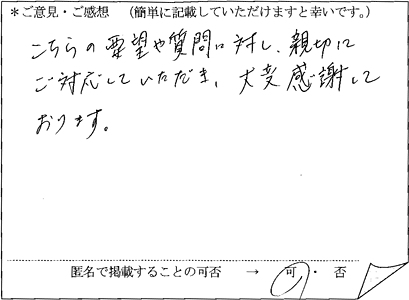 ＊ご意見・ご感想　（簡単に記載していただけますと幸いです。）
こちらの要望や質問に対し、親切に
ご対応していただき、大変感謝して
おります。
匿名で掲載することの可否　→　可・否